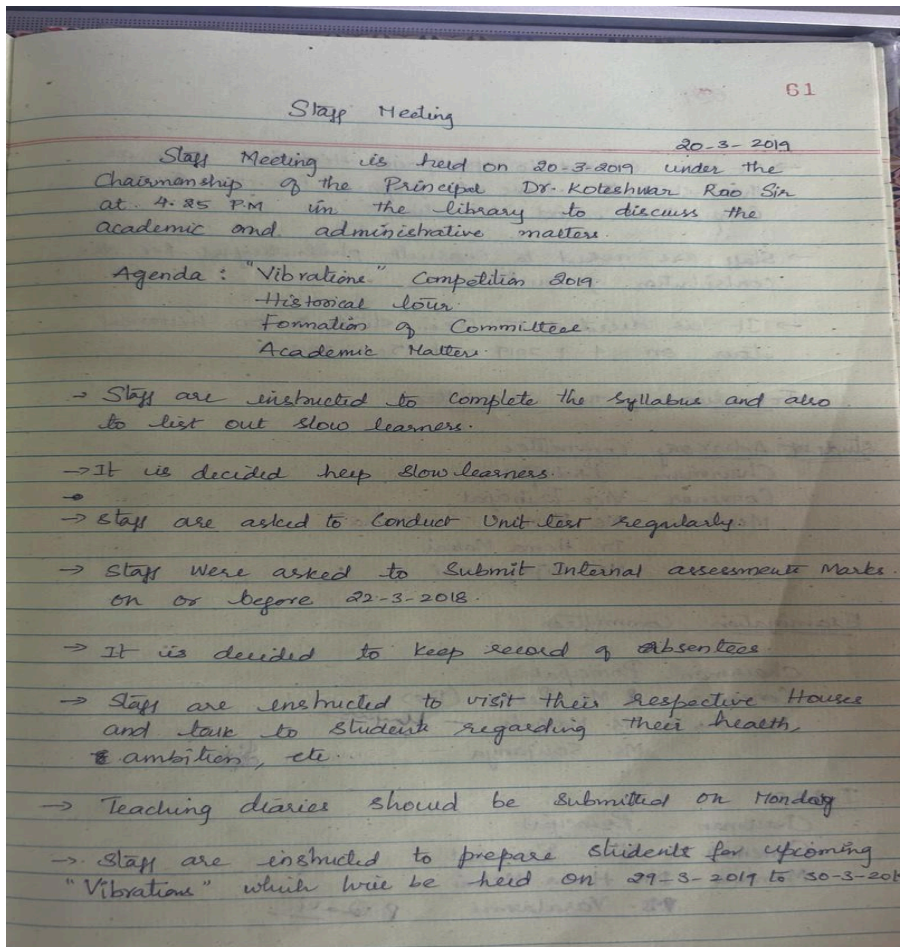 61
Staff Meeting
20-3-2019
Staff Meeting is held on 20-3-2019 under the
Chairmanship of the Principal Dr. Koteshwar Rao Sir
at 4.25 P.M in the library to discuss the
academic and administrative matters.
Agenda : "Vibrations" Competition 2019.
Historical tour.
Formation of Committees
Academic Matters.
→ Staff are instructed to complete the syllabus and also
to list out slow learners.
→ It is decided help slow learners.
→ Staff are asked to Conduct Unit test regularly.
→ Staff Were asked to Submit Internal assessments Marks.
on or before 22-3-2018.
→ It is decided to keep record of absentees.
→ Staff are instructed to visit their respective Houses
and talk to students regarding their health,
ambition, etc.
→ Teaching diaries should be submitted on Monday
→ Staff are instructed to prepare students for upcoming
"Vibrations" which will be held on 29-3-2019 to 30-3-201